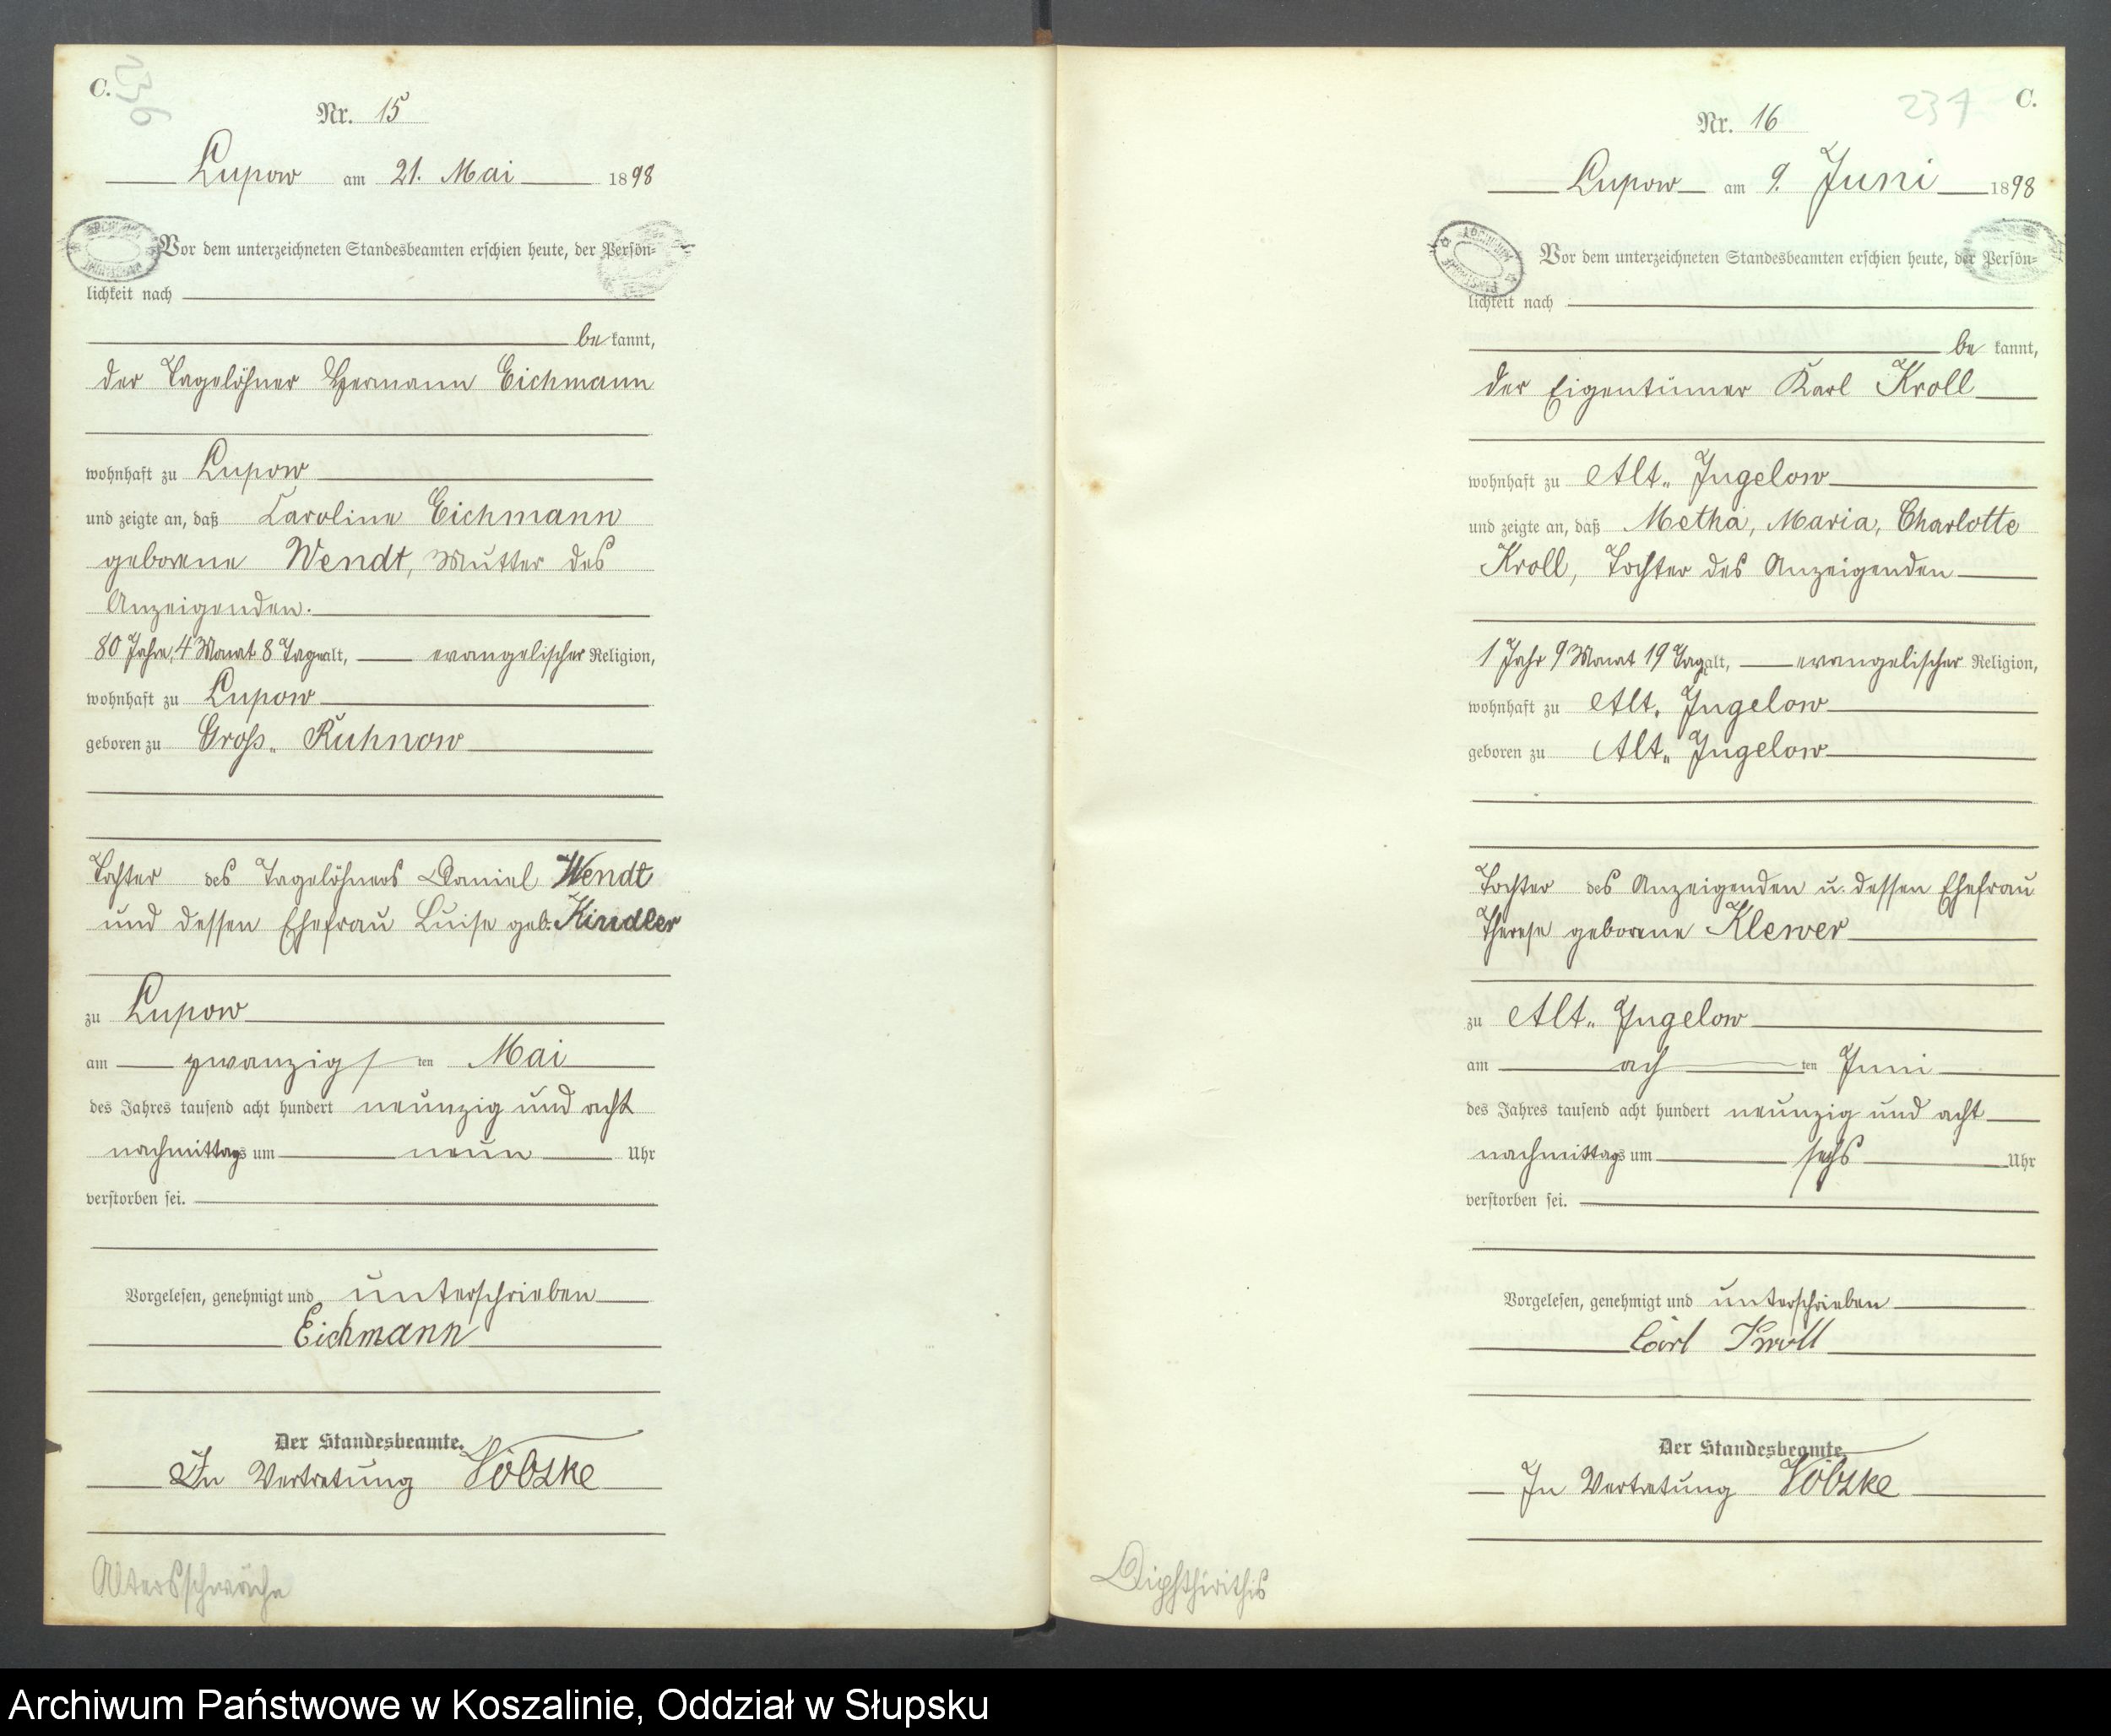 C.
236
Nr. 15
Lupow am 21. Mai 1898
Vor dem unterzeichneten Standesbeamten erschien heute, der Persön-
lichkeit nach
be kannt,
der Tagelöhner Hermann Eichmann
wohnhaft zu Lupow
und zeigte an, daß Caroline Eichmann
geborene Wendt, Mutter des
Anzeigenden.
80 Jahre, 4 Monat 8 Tage alt, evangelischer Religion,
wohnhaft zu Lupow
geboren zu Groß- Ruhnow
Tochter des Tagelöhners Daniel Wendt
und dessen Ehefrau Luise geb. Kindler
zu Lupow
am zwanzigs ten Mai
des Jahres tausend acht hundert neunzig und acht
nachmittags um neun Uhr
verstorben sei.
Vorgelesen, genehmigt und unterschrieben
Eichmann
Der Standesbeamte.
In Vertretung Wobzke
Altersschwäche
237
C.
Nr. 16
Lupow am 9. Juni 1898
ARCHIWUM
Vor dem unterzeichneten Standesbeamten erschien heute, der Persön-
lichkeit nach
be kannt,
der Eigentümer Karl Kroll
wohnhaft zu Alt- Jugelow
und zeigte an, daß Metha, Maria, Charlotte
Kroll, Tochter des Anzeigenden
1 Jahr 9 Monat 19 Tag alt, evangelischer Religion,
wohnhaft zu Alt- Jugelow
geboren zu Alt- Jugelow
Tochter des Anzeigenden u. dessen Ehefrau
Therese geborene Klewer
zu Alt- Jugelow
am ach ten Juni
des Jahres tausend acht hundert neunzig und acht
nachmittags um sechs Uhr
verstorben sei.
Vorgelesen, genehmigt und unterschrieben
Carl Kroll
Der Standesbeamte.
In Vertretung Wobzke
Diphthirithis
Archiwum Państwowe w Koszalinie, Oddział w Słupsku